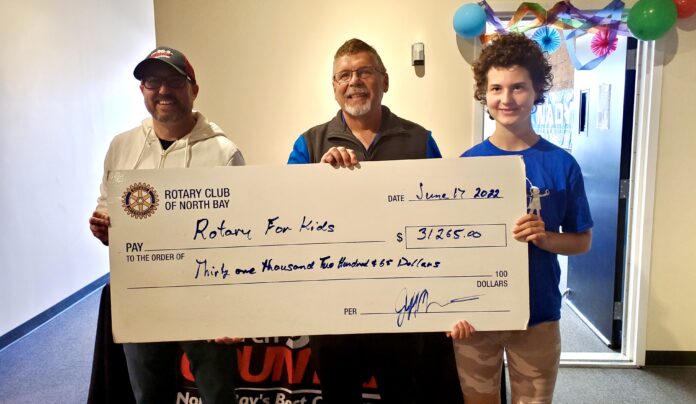 ROTARY CLUB
OF NORTH BAY
DATE June 17 2022
PAY Rotary For Kids $ 31265.00
TO THE ORDER OF
Thirty one thousand Two Hundred & 65 Dollars 100
DOLLARS
PER
Bay's Best